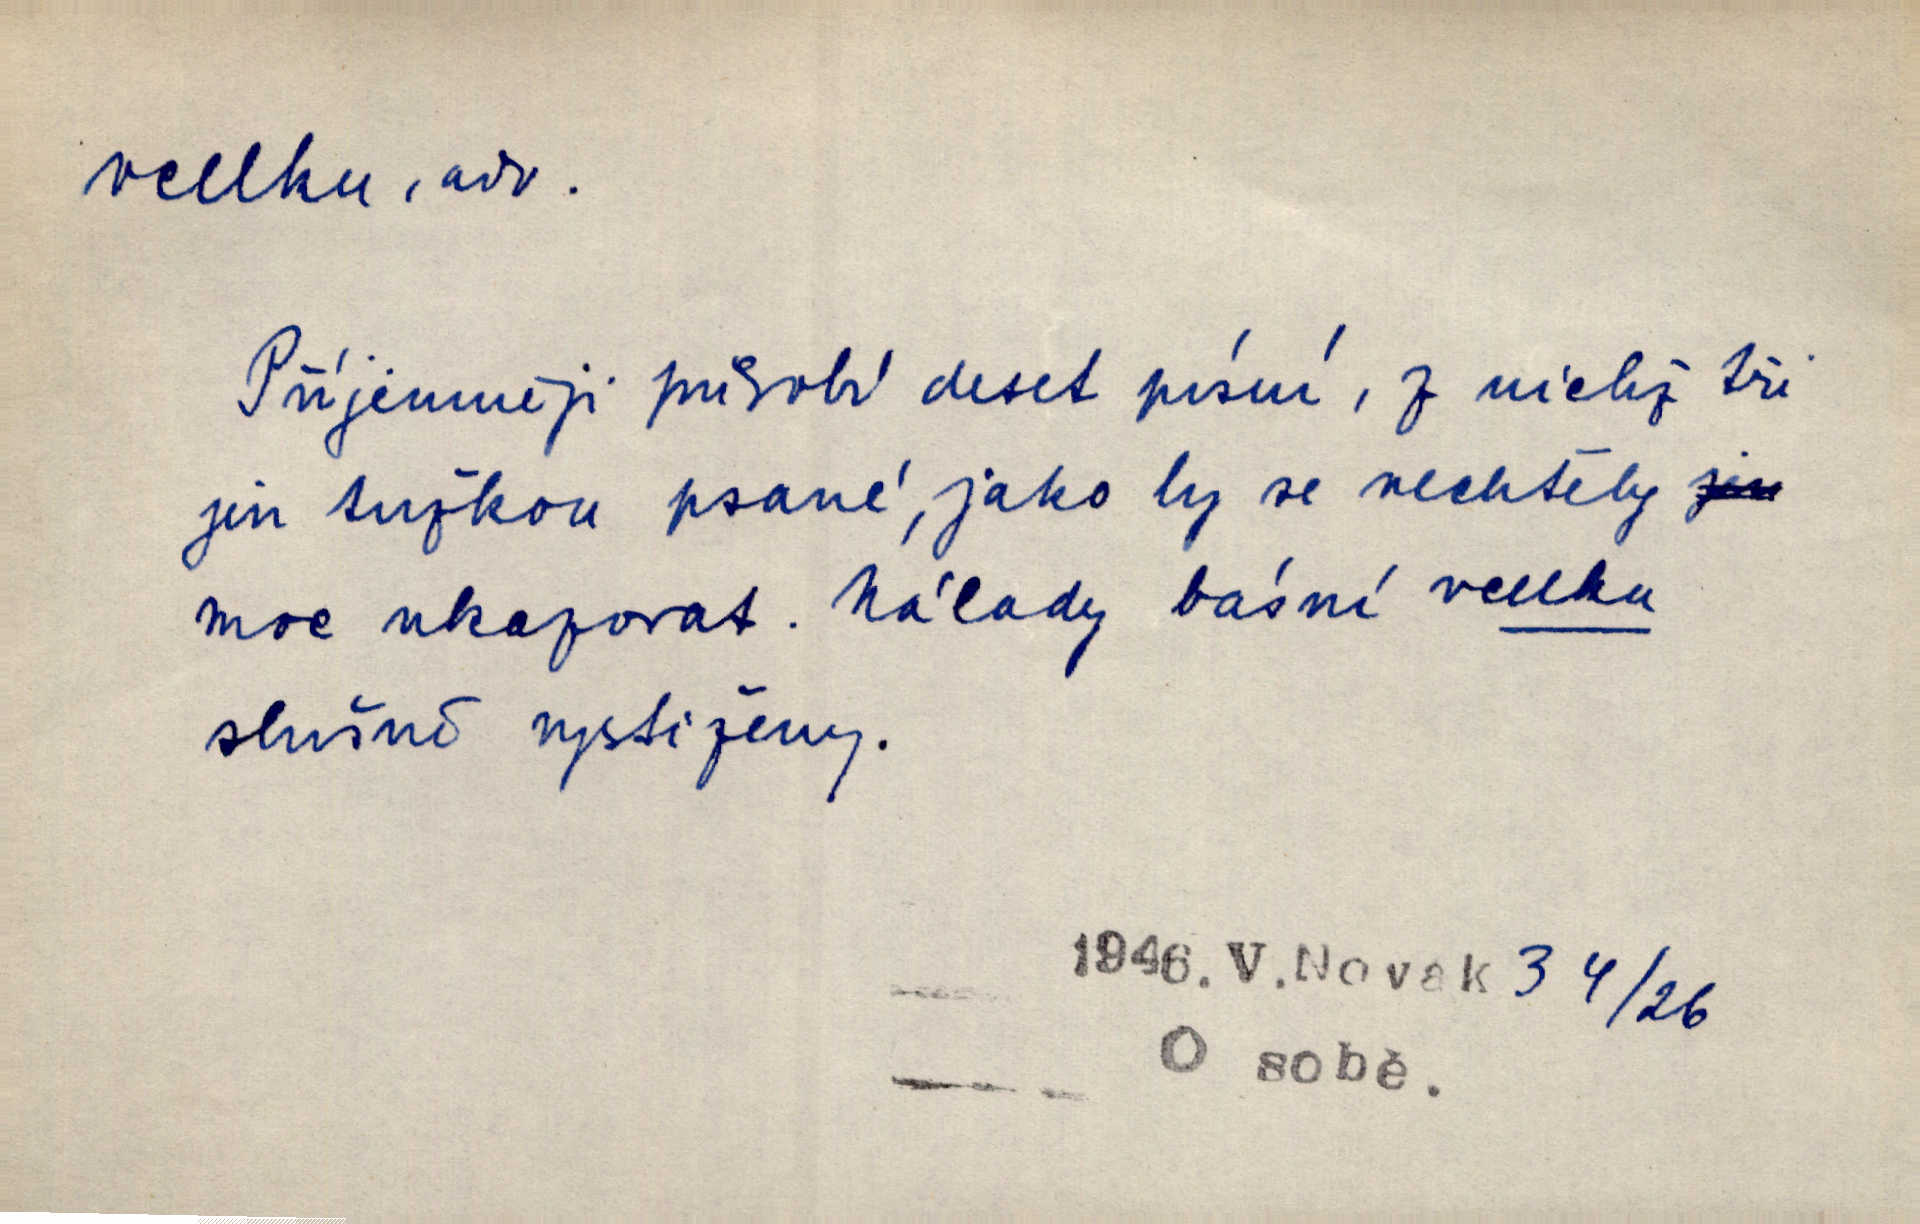 vcelku, adv.
Příjemněji působí deset písní, z nichž tři
jen tužkou psané, jako by se nechtěly jen
moc ukazovat. Nálady básní vcelku
slušně vystiženy.
1946. V. Novak 34/26
O sobě.